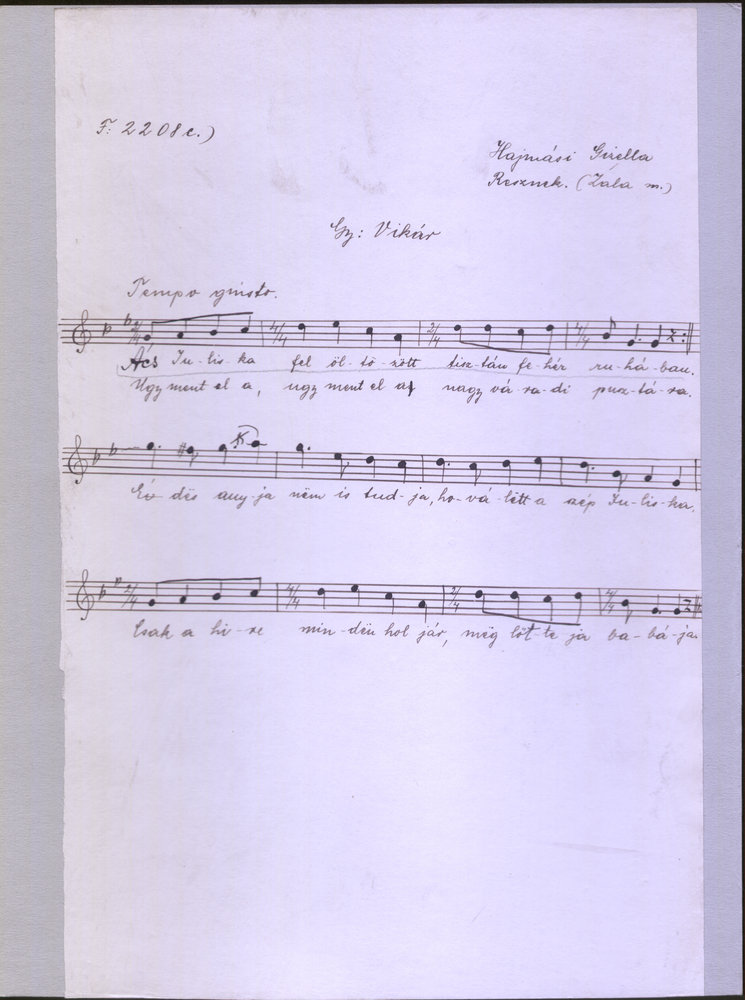 F. 2208c.)
Hajmási Gizella
Resznek. (Zala m.)
Gy: Vikár
Tempo giusto.
Ács Ju-lis-ka fel öl-tö-zött tisz-tán fe-hér ru-há-ban.
Ugy ment el a, ugy ment el a nagy vá-ra-di pusz-tá-ra.
Év dës any-ja nëm is tud-ja, ho-vá-lëtt a szép Ju-lis-ka,
Csak a hi-re min-dën hol jár, mëg löt-te ja ba-bá-ja.